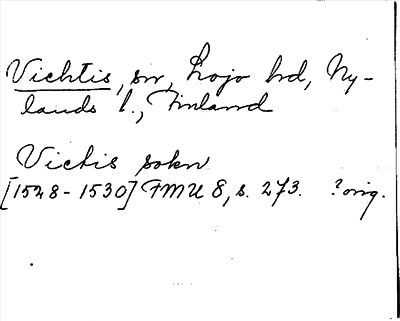 Vichtis, sn, Lojo hd, Ny-
lands l., Finland
Victis sokn
[1528-1530] FMU 8, s. 273. ?orig.